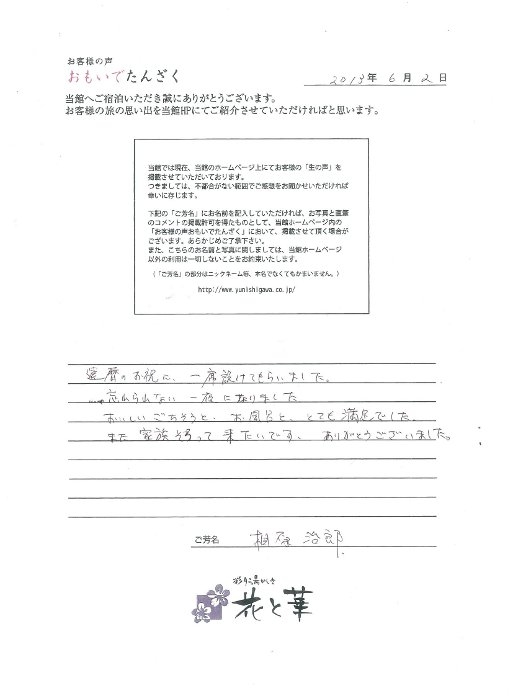 お客様の声
おもいでたんざく
2013年 6月 2日
当館へご宿泊いただき誠にありがとうございます。
お客様の旅の思い出を当館HPにてご紹介させていただければと思います。
当館では現在、当館のホームページ上にてお客様の「生の声」を
掲載させていただいております。
つきましては、不都合がない範囲でご感想をお聞かせいただければ
幸いに存じます。
下記の「ご芳名」にお名前を記入していただければ、お写真と直筆
のコメントの掲載許可を得たものとして、当館ホームページ内の
「お客様の声おもいでたんざく」において、掲載させて頂く場合が
ございます。あらかじめご了承下さい。
また、こちらのお名前と写真に関しましては、当館ホームページ
以外の利用は一切しないことをお約束いたします。
(「ご芳名」の部分はニックネーム等、本名でなくてもかまいません。)
http://www.yunishigawa.co.jp/
還暦のお祝に、一席設けてもらいました。
忘れられない一夜になりました
おいしいごちそうと、お風呂と、とても満足でした
また家族そろって来たいです、ありがとうございました。
ご芳名 治郎
花と華